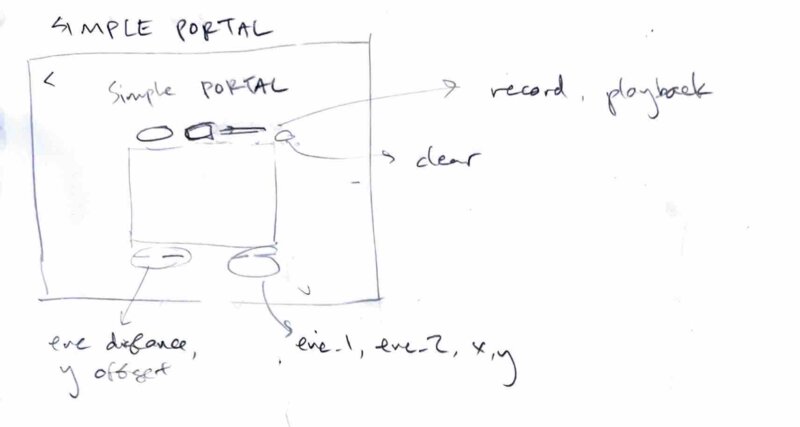 SIMPLE PORTAL
<
Simple PORTAL
record, playback
clear
eye distance,
y offset
eye_1, eye_2, x,y